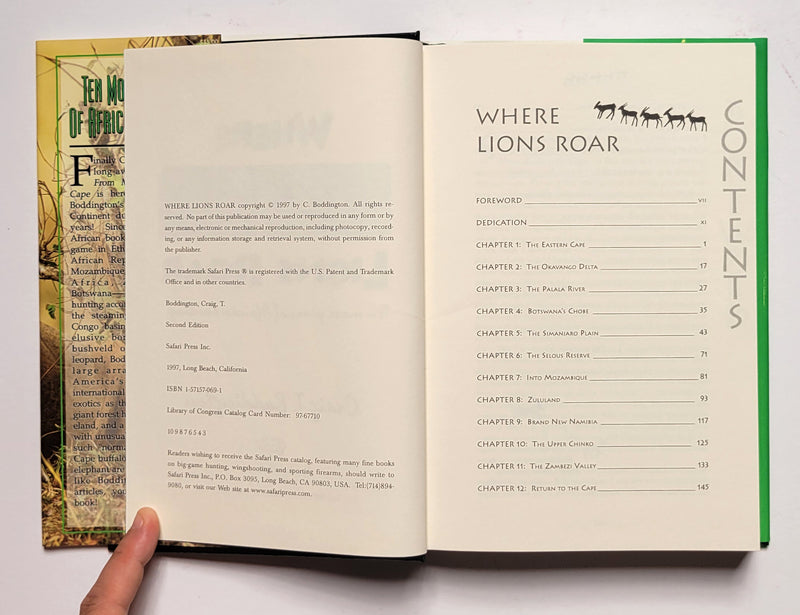 TEN MO
OF AFRIC
Finally C
long-aw
From M
Cape is here
Boddington's
Continent du
years! Since
African book
game in Eth
African Rep
Mozambique
Africa, Z
Botswana—
hunting acco
the steaming
Congo basin
elusive bon
bushveld o
leopard, Bod
large arra
America's
international
exotics as th
giant forest h
eland, and a
with unusual
such "norma
Cape buffalo
elephant are
like Boddin
articles, you
book!
WHERE LIONS ROAR copyright © 1997 by C. Boddington. All rights re-
served. No part of this publication may be used or reproduced in any form or by
any means, electronic or mechanical reproduction, including photocopy, record-
ing, or any information storage and retrieval system, without permission from
the publisher.
The trademark Safari Press ® is registered with the U.S. Patent and Trademark
Office and in other countries.
Boddington, Craig, T.
Second Edition
Safari Press Inc.
1997, Long Beach, California
ISBN 1-57157-069-1
Library of Congress Catalog Card Number: 97-67710
10 9 8 7 6 5 4 3
Readers wishing to receive the Safari Press catalog, featuring many fine books
on big-game hunting, wingshooting, and sporting firearms, should write to
Safari Press Inc., P.O. Box 3095, Long Beach, CA 90803, USA. Tel:(714)894-
9080, or visit our Web site at www.safaripress.com.
WHERE
LIONS ROAR
CONTENTS
FOREWORD vii
DEDICATION xi
CHAPTER 1: THE EASTERN CAPE 1
CHAPTER 2: THE OKAVANGO DELTA 17
CHAPTER 3: THE PALALA RIVER 27
CHAPTER 4: BOTSWANA'S CHOBE 35
CHAPTER 5: THE SIMANJARO PLAIN 43
CHAPTER 6: THE SELOUS RESERVE 71
CHAPTER 7: INTO MOZAMBIQUE 81
CHAPTER 8: ZULULAND 93
CHAPTER 9: BRAND NEW NAMIBIA 117
CHAPTER 10: THE UPPER CHINKO 125
CHAPTER 11: THE ZAMBEZI VALLEY 133
CHAPTER 12: RETURN TO THE CAPE 145